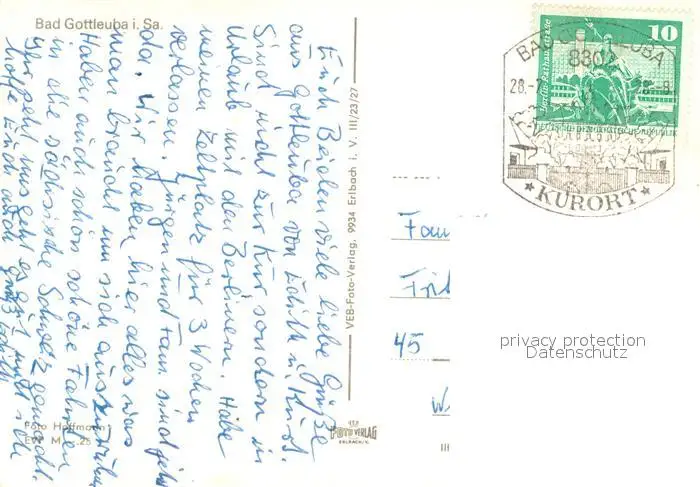 Bad Gottleuba i. Sa.
Euch Beiden viele liebe Grüße
aus Gottleuba von Edith u. Kurt.
Sind nicht zur Kur sondern in
Urlaub mit den Berlinern. Habe
meinen Zeltplatz für 3 Wochen
verlassen. Jürgen und Fam. sind jetzt
da. Wir haben hier alles was
man braucht um sich auszuruhen
Haben auch schon schöne Fahrten
in die sächsische Schweiz gemacht.
geht uns geht es gut
hoffe Euch auch Gruß Edith
Foto Hoffmann
VEB-Foto-Verlag, 9934 Erlbach i. V. III/23/27
FOTO VERLAG
ERLBACH/V.
10
Berlin-Rathausstraße
DEUTSCHE DEMOKRATISCHE REPUBLIK
BAD GOTTLEUBA
8302
28.-7
KURORT
Fam
45
III
privacy protection
Datenschutz